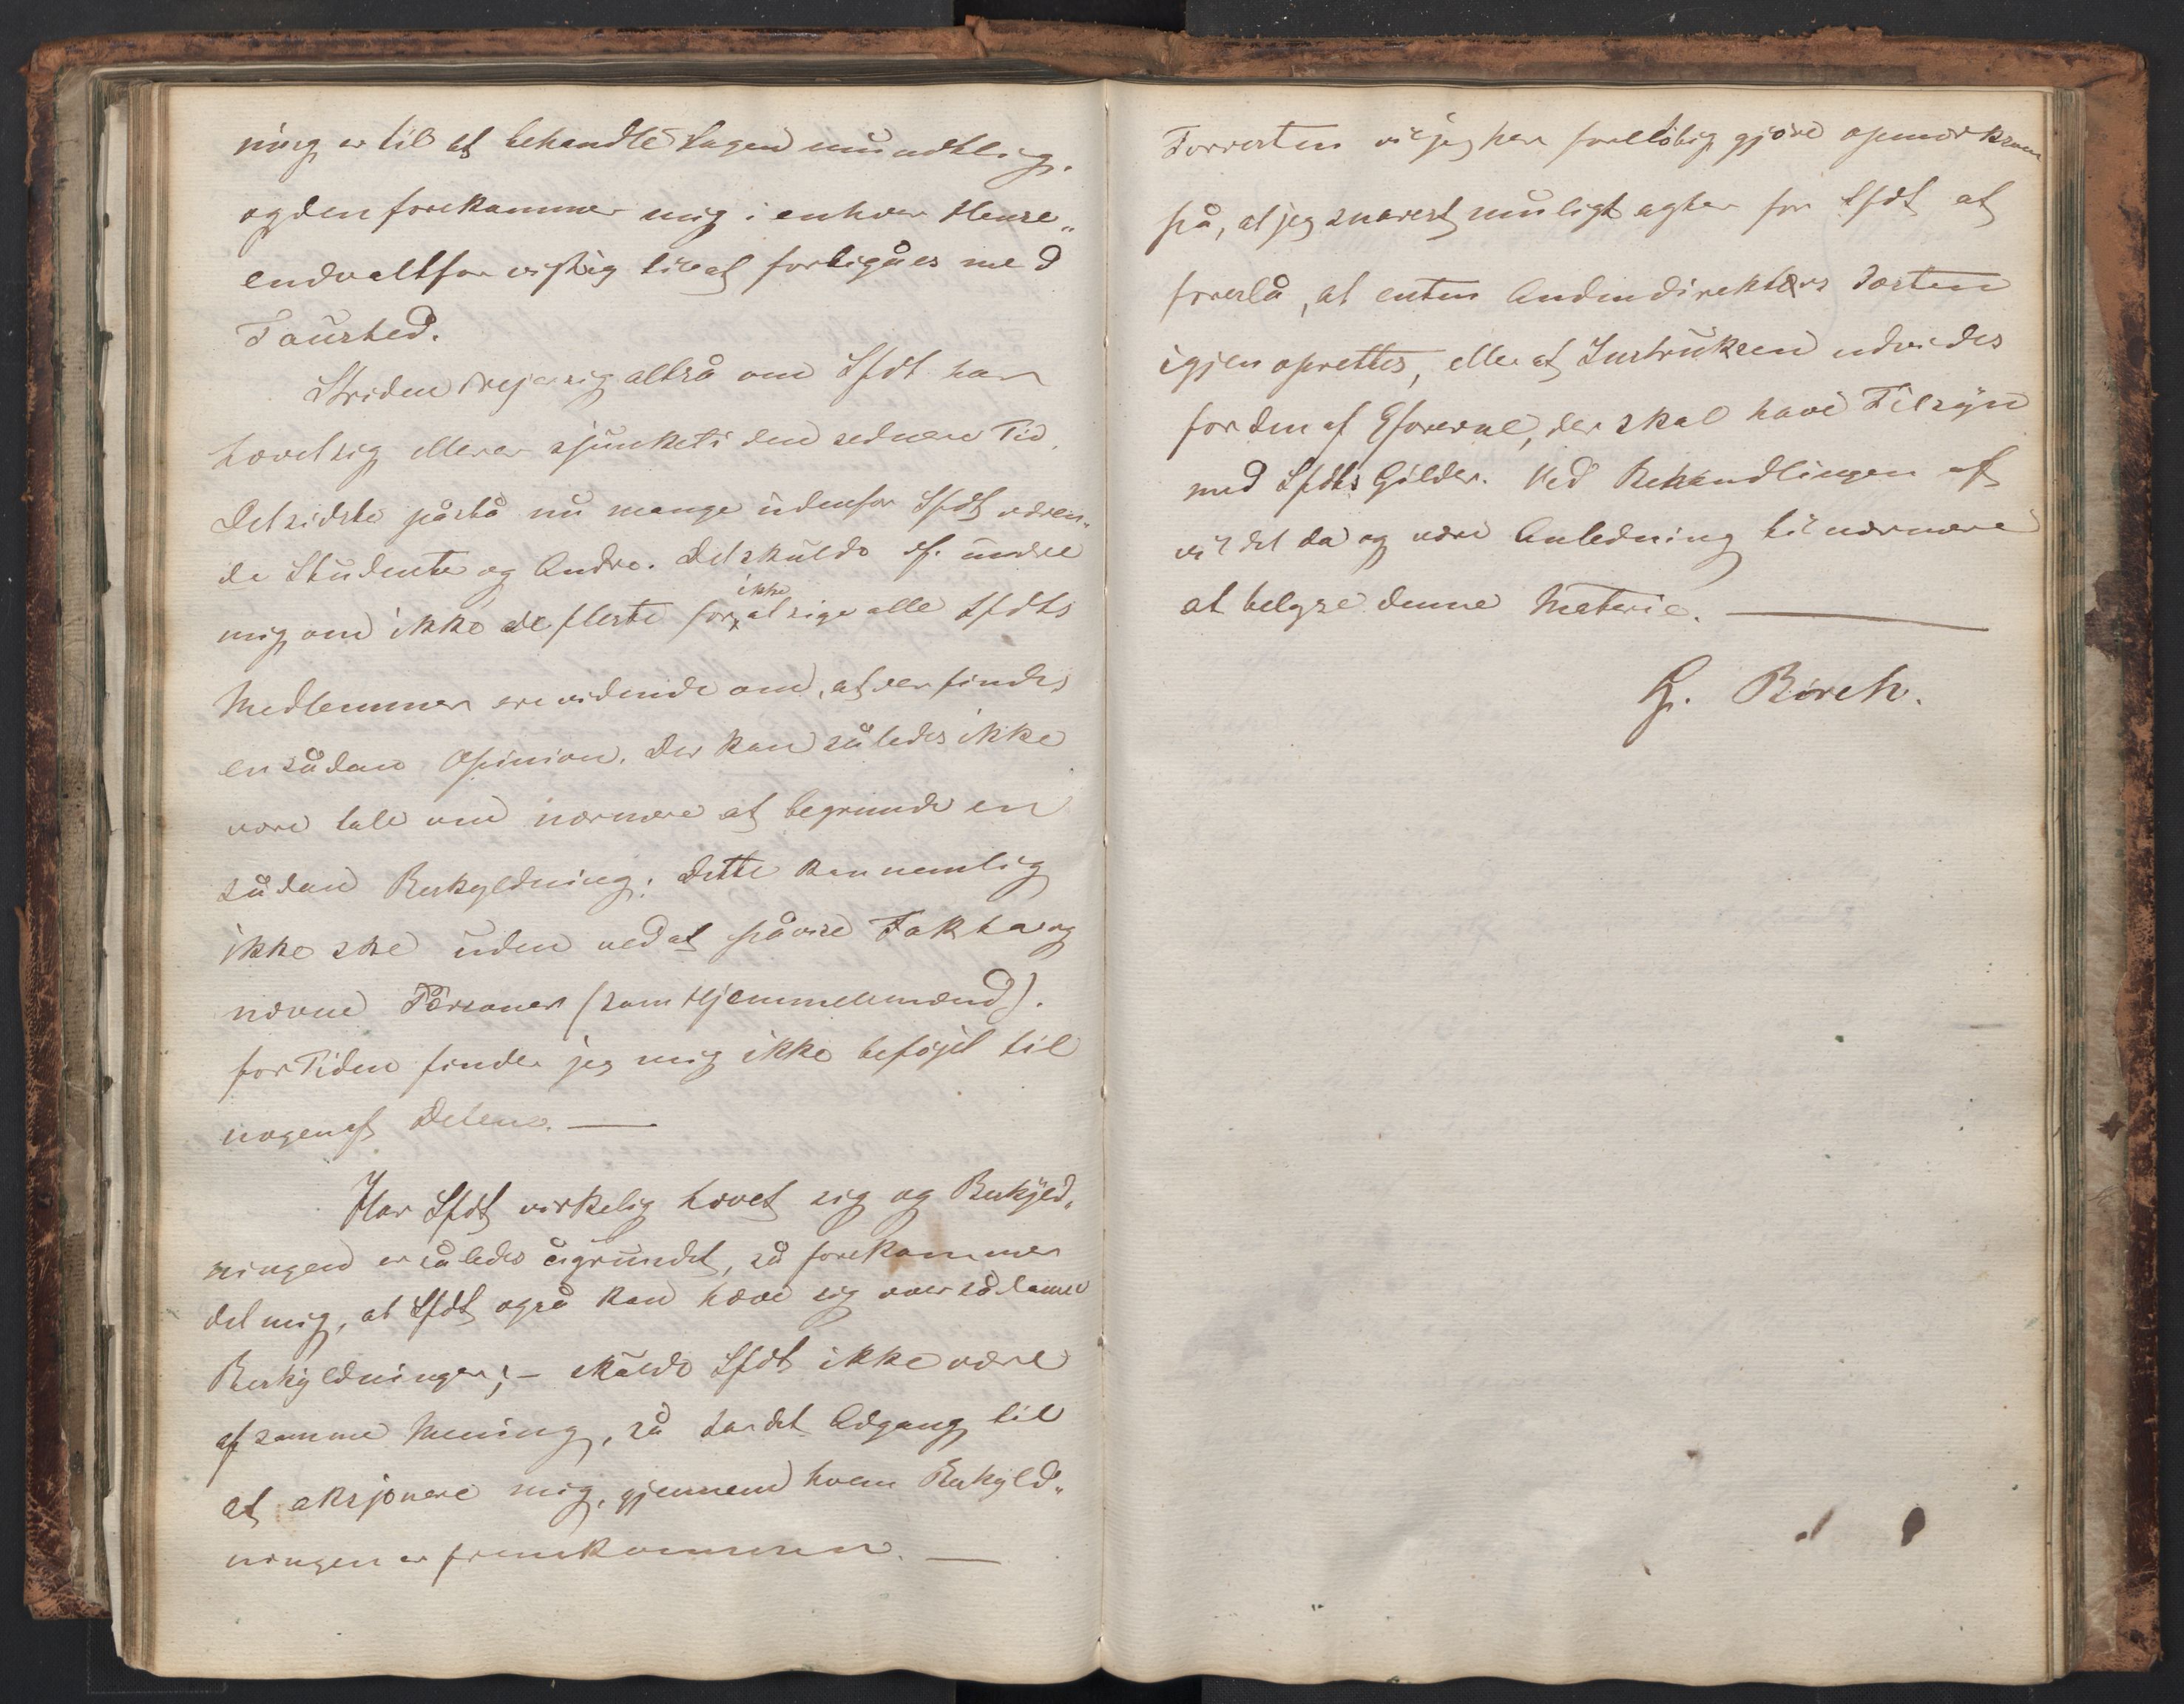 ning er til at behandle Sagen mundtlig,
og den forekommer mig i enhver Hense„
endo altfor vigtig til at forbigåes med
Taushed.
Striden drejer sig altså om Sfdt har
hævet sig eller er sjunket i den sednere Tid.
Det sidste påstå nu mange udenfor Sfdt væren„
de Studenter og Andre. Det skulde ef. undre
mig om ikke de fleste for ikke at sige alle Sfdts
Medlemmer ere vidende om, at der findes
en sådan Opinion. Der kan således ikke
være tale om nærmere at begrunde en
sådan Beskyldning; dette kan nemlig
ikke ske uden ved at påvise Fakta og
nævne Personer (som Hjemmelsmænd).
for Tiden finder jeg mig ikke beføjet til
nogen af Delene. —
Har Sfdt virkelig hævet sig og Beskyld„
ningen er således ugrundet, så forekommer
det mig, at Sfdt også kan hæve sig over sådanne
Beskyldninger; – skulde Sfdt ikke være
af samme Mening, så har det Adgang til
at aksjonere mig, gjennem hvem Beskyld„
ningen er fremkommen. —
Forresten vil jeg her foreløbig gjøre opmærksom
på, at jeg snarest muligt agter for Sfdt at
foreslå, at enten Andendirektørs Posten
igjen oprettes, eller at Instruksen udvides
for den af Eforerne, der skal have Tilsyn
med Sfdts Gilder. Ved Behandlingen af
vil det da og være Anledning til nærmere
at belyse denne Materie. —
H. Børch.